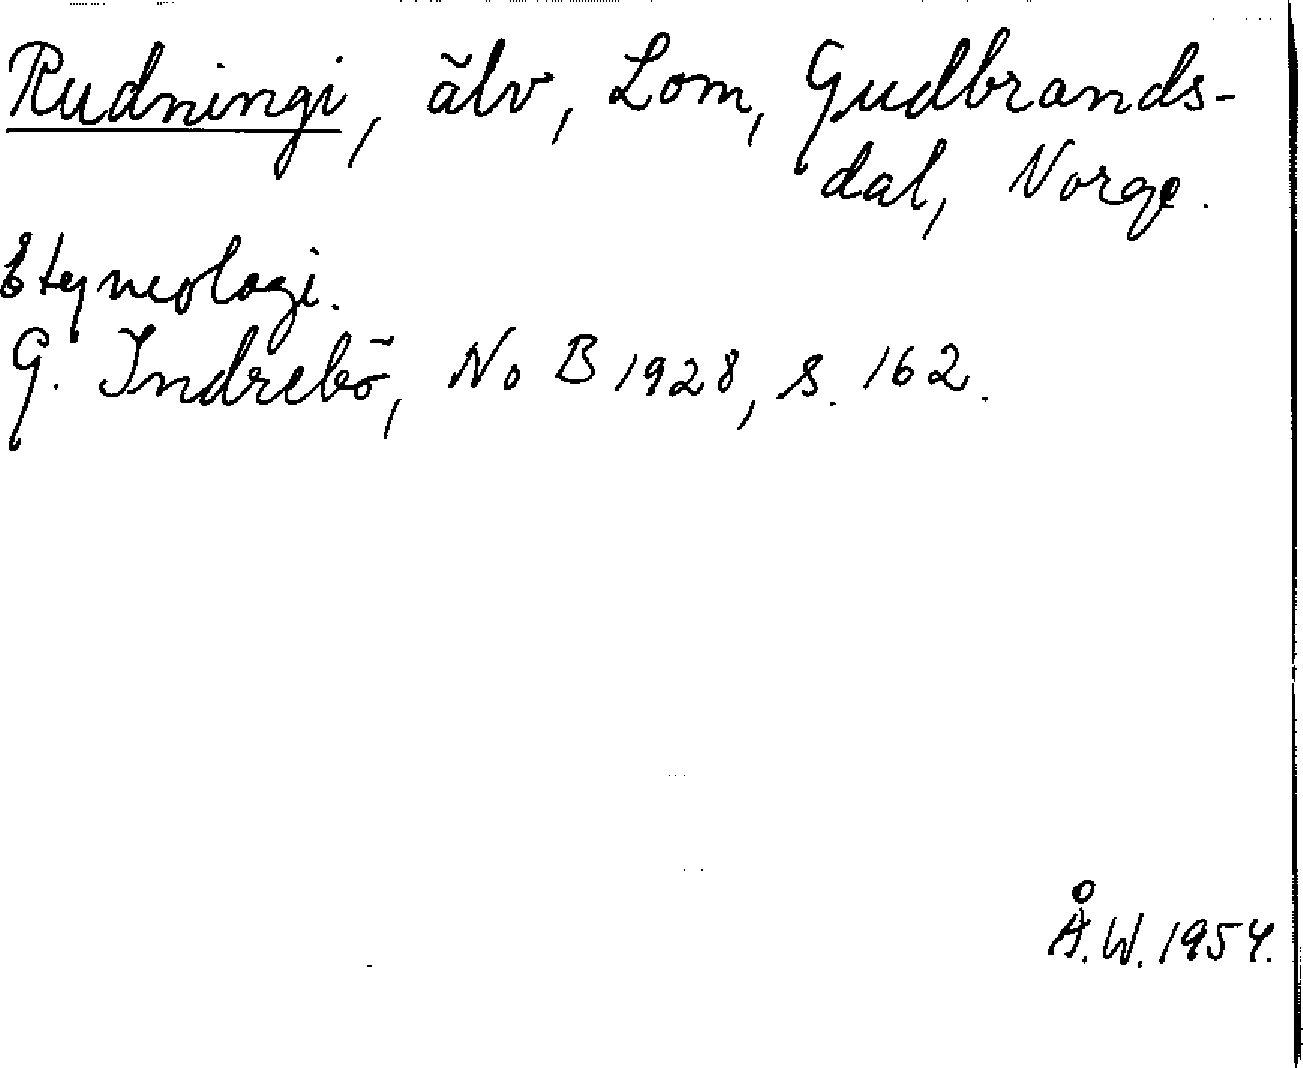 Rudningi, älv, Lom, Gudbrands-
dal, Norge.
Etymologi.
G. Indrebö, No B 1928, s. 162.
Å.W. 1954.